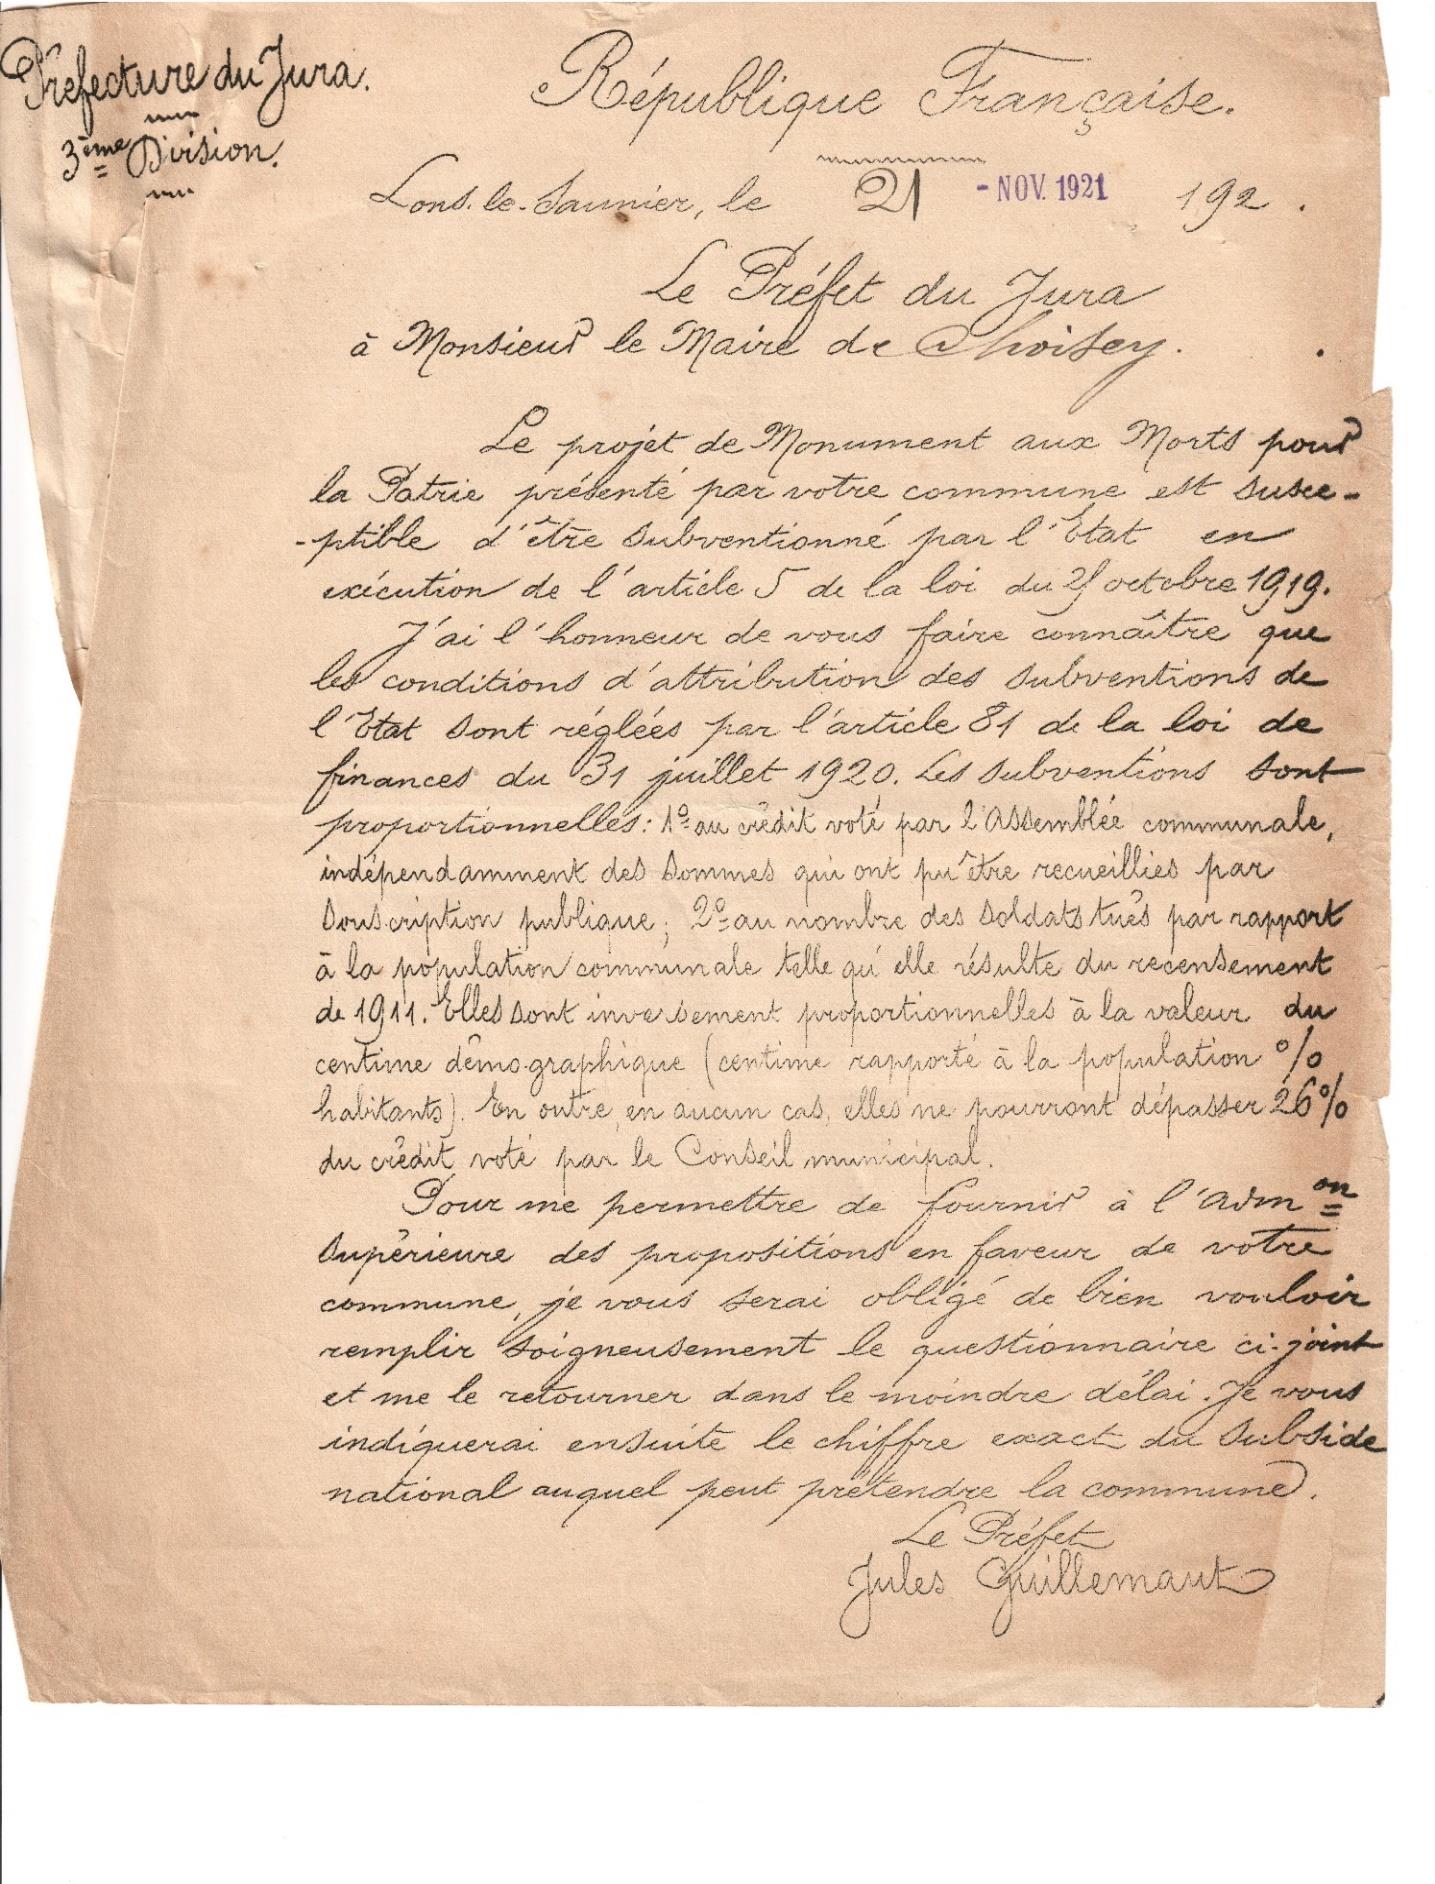 Préfecture du Jura.
3ème Division.
République Française.
Lons-le-Saunier, le 21 - NOV. 1921 192 .
Le Préfet du Jura
à Monsieur le Maire de Choisey.
Le projet de Monument aux Morts pour
la Patrie présenté par votre commune est susce-
-ptible d'être subventionné par l'Etat en
exécution de l'article 5 de la loi du 25 octobre 1919.
J'ai l'honneur de vous faire connaître que
les conditions d'attribution des subventions de
l'Etat sont réglées par l'article 81 de la loi de
finances du 31 juillet 1920. Les subventions sont
proportionnelles: 1º au crédit voté par l'Assemblée communale,
indépendamment des sommes qui ont pu être recueillies par
souscription publique; 2º au nombre des soldats tués par rapport
à la population communale telle qu'elle résulte du recensement
de 1911. Elles sont inversement proportionnelles à la valeur du
centime démographique (centime rapporté à la population %
habitants). En outre, en aucun cas, elles ne pourront dépasser 26%
du crédit voté par le Conseil municipal.
Pour me permettre de fournir à l'adm on
supérieure des propositions en faveur de votre
commune, je vous serai obligé de bien vouloir
remplir soigneusement le questionnaire ci-joint
et me le retourner dans le moindre délai. Je vous
indiquerai ensuite le chiffre exact du subside
national auquel peut prétendre la commune.
Le Préfet
Jules Guillemaut